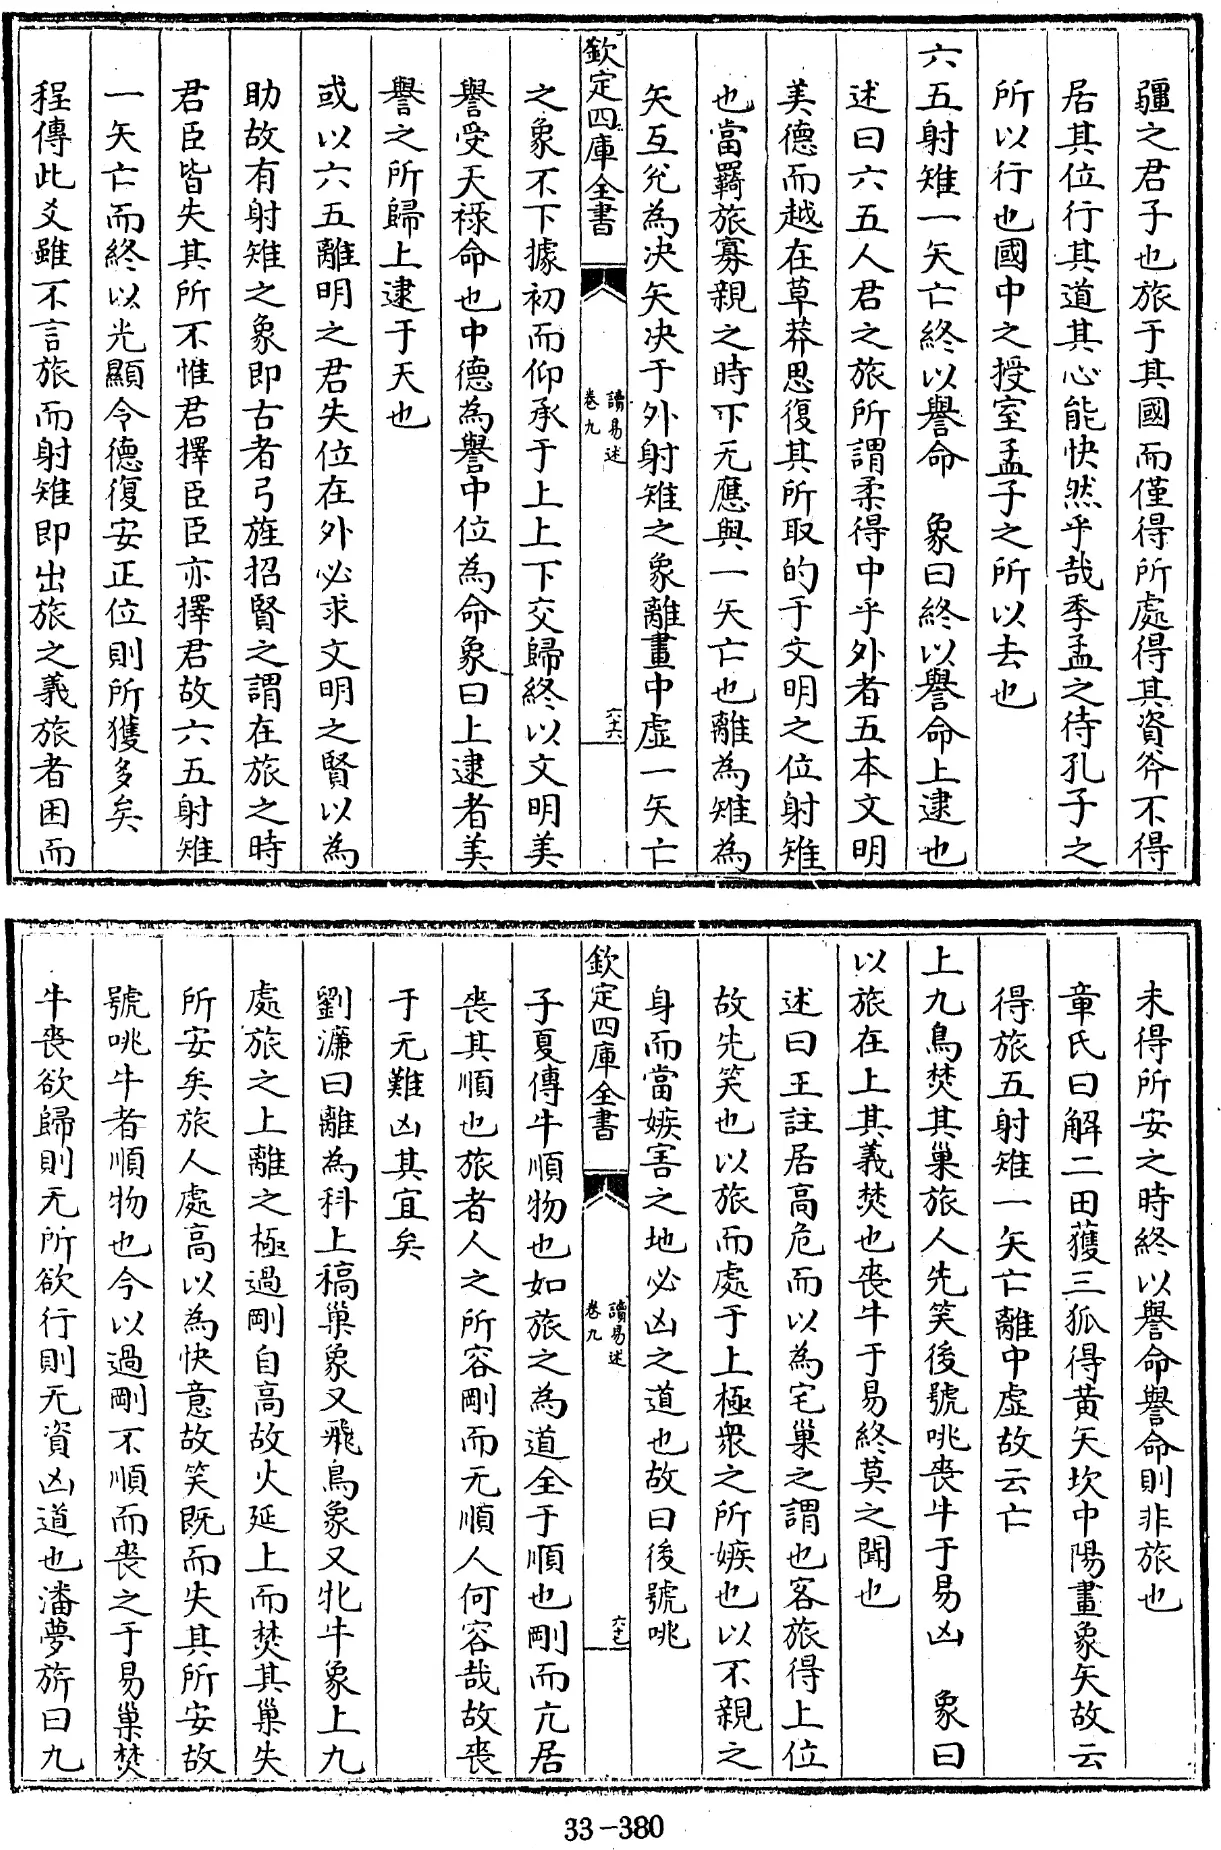 疆之君子也旅于其國而僅得所處得其資斧不得
居其位行其道其心能快然乎哉季孟之待孔子之
所以行也國中之授室孟子之所以去也
六五射雉一矢亡終以譽命　象曰終以譽命上逮也
述曰六五人君之旅所謂柔得中乎外者五本文明
美德而越在草莽思復其所取的于文明之位射雉
也當羇旅寡親之時下无應與一矢亡也離為雉為
矢互兊為决矢决于外射雉之象離畫中虛一矢亡
欽定四庫全書
讀易述
卷九
六十六
之象不下據初而仰承于上上下交歸終以文明美
譽受天祿命也中德為譽中位為命象曰上逮者美
譽之所歸上逮于天也
或以六五離明之君失位在外必求文明之賢以為
助故有射雉之象即古者弓旌招賢之謂在旅之時
君臣皆失其所不惟君擇臣臣亦擇君故六五射雉
一矢亡而終以光顯令德復安正位則所獲多矣
程傳此爻雖不言旅而射雉即出旅之義旅者困而
未得所安之時終以譽命譽命則非旅也
章氏曰解二田獲三狐得黄矢坎中陽畫象矢故云
得旅五射雉一矢亡離中虛故云亡
上九鳥焚其巢旅人先笑後號咷喪牛于易凶　象曰
以旅在上其義焚也喪牛于易終莫之聞也
述曰王註居高危而以為宅巢之謂也客旅得上位
故先笑也以旅而處于上極衆之所嫉也以不親之
身而當嫉害之地必凶之道也故曰後號咷
欽定四庫全書
讀易述
卷九
六十七
子夏傳牛順物也如旅之為道全于順也剛而亢居
喪其順也旅者人之所容剛而无順人何容哉故喪
于无難凶其宜矣
劉濂曰離為科上稿巢象又飛鳥象又牝牛象上九
處旅之上離之極過剛自高故火延上而焚其巢失
所安矣旅人處高以為快意故笑既而失其所安故
號咷牛者順物也今以過剛不順而喪之于易巢焚
牛喪欲歸則无所欲行則无資凶道也潘夢旂曰九
33-380